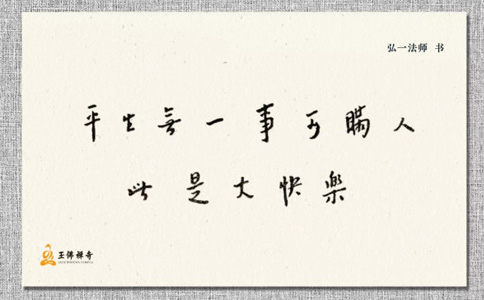 弘一法师 书
平生無一事可瞞人
此是大快樂
玉佛禅寺